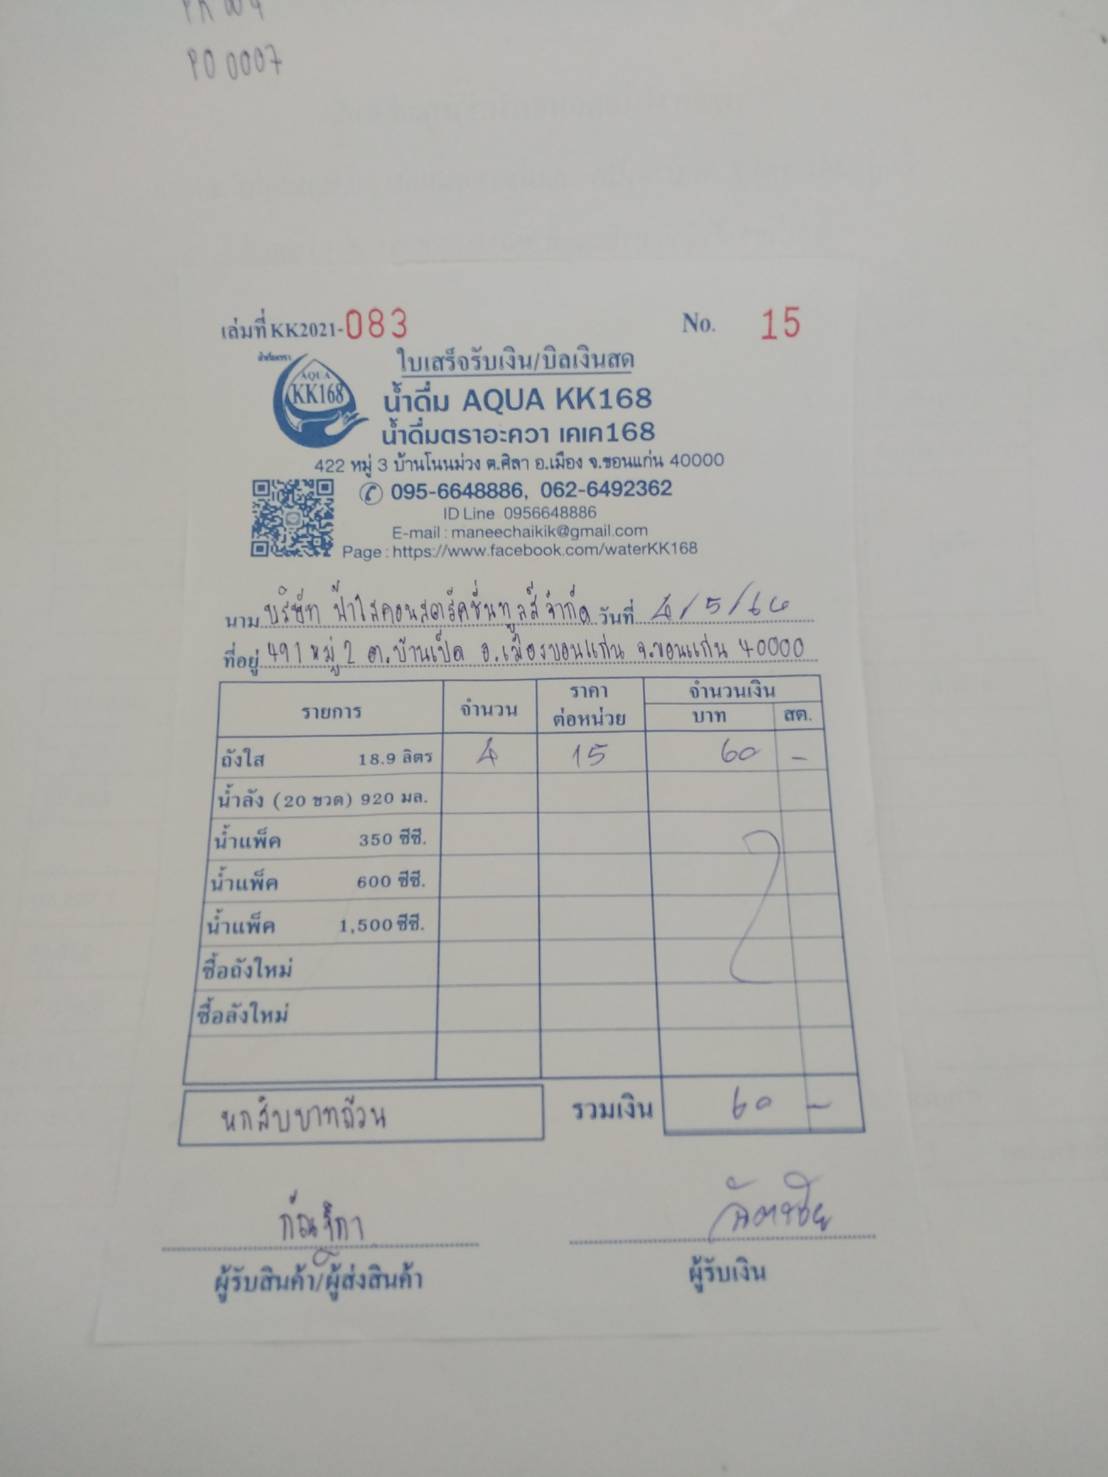 PO 0007
เล่มที่ KK2021-083 No. 15
ใบเสร็จรับเงิน/บิลเงินสด
AQUA KK168
น้ำดื่ม AQUA KK168
น้ำดื่มตราอะควา เคเค168
422 หมู่ 3 บ้านโนนม่วง ต.ศิลา อ.เมือง จ.ขอนแก่น 40000
095-6648886, 062-6492362
ID Line 0956648886
E-mail : maneechaikik@gmail.com
Page : https://www.facebook.com/waterKK168
นาม บริษัท ฟ้าใสคอนสตรัคชั่นทูลส์ จำกัด วันที่ 4/5/64
ที่อยู่ 491 หมู่ 2 ต.บ้านเป็ด อ.เมืองขอนแก่น จ.ขอนแก่น 40000
รายการ จำนวน ราคาต่อหน่วย จำนวนเงิน
บาท สต.
ถังใส 18.9 ลิตร 4 15 60 -
น้ำลัง (20 ขวด) 920 มล.
น้ำแพ็ค 350 ซีซี.
น้ำแพ็ค 600 ซีซี.
น้ำแพ็ค 1,500 ซีซี.
ซื้อถังใหม่
ซื้อลังใหม่
หกสิบบาทถ้วน รวมเงิน 60 -
ผู้รับสินค้า/ผู้ส่งสินค้า ผู้รับเงิน